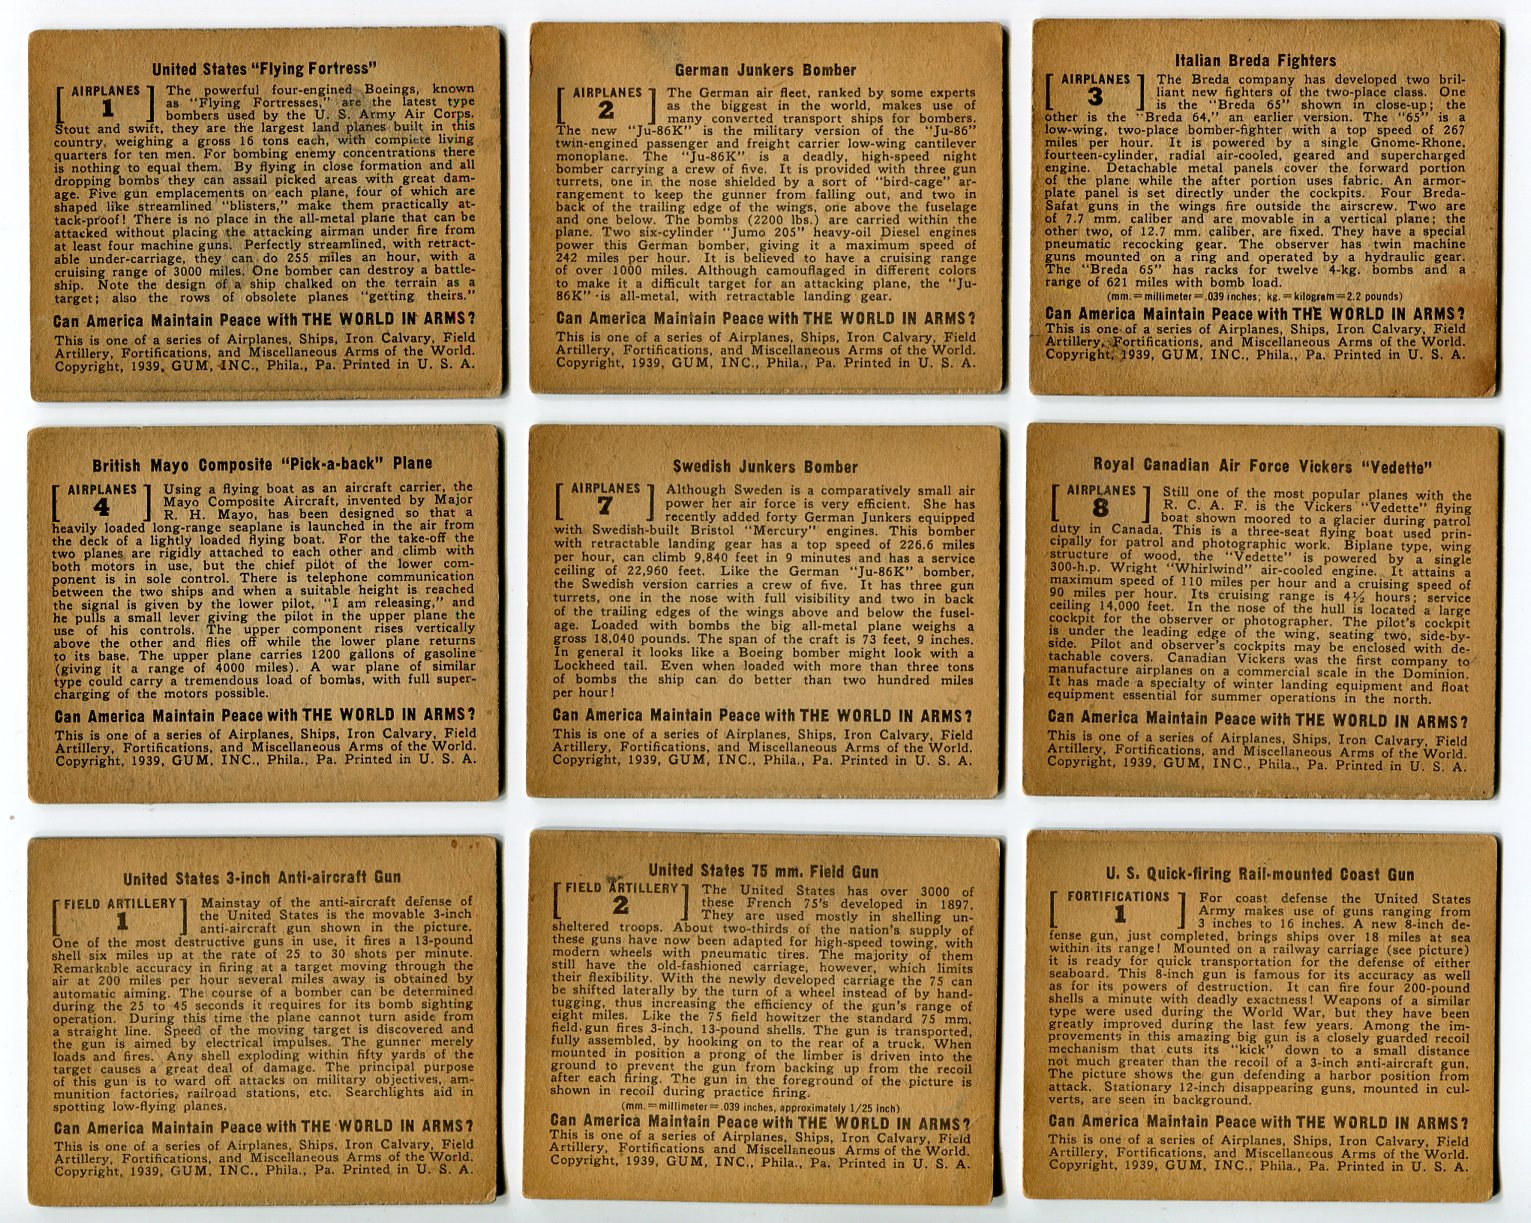 United States "Flying Fortress"
[ AIRPLANES 1 ] The powerful four-engined Boeings, known
as "Flying Fortresses," are the latest type
bombers used by the U. S. Army Air Corps.
Stout and swift, they are the largest land planes built in this
country, weighing a gross 16 tons each, with complete living
quarters for ten men. For bombing enemy concentrations there
is nothing to equal them. By flying in close formation and all
dropping bombs they can assail picked areas with great dam-
age. Five gun emplacements on each plane, four of which are
shaped like streamlined "blisters," make them practically at-
tack-proof! There is no place in the all-metal plane that can be
attacked without placing the attacking airman under fire from
at least four machine guns. Perfectly streamlined, with retract-
able under-carriage, they can do 255 miles an hour, with a
cruising range of 3000 miles. One bomber can destroy a battle-
ship. Note the design of a ship chalked on the terrain as a
target; also the rows of obsolete planes "getting theirs."
Can America Maintain Peace with THE WORLD IN ARMS?
This is one of a series of Airplanes, Ships, Iron Calvary, Field
Artillery, Fortifications, and Miscellaneous Arms of the World.
Copyright, 1939, GUM, INC., Phila., Pa. Printed in U. S. A.
German Junkers Bomber
[ AIRPLANES 2 ] The German air fleet, ranked by some experts
as the biggest in the world, makes use of
many converted transport ships for bombers.
The new "Ju-86K" is the military version of the "Ju-86"
twin-engined passenger and freight carrier low-wing cantilever
monoplane. The "Ju-86K" is a deadly, high-speed night
bomber carrying a crew of five. It is provided with three gun
turrets, one in the nose shielded by a sort of "bird-cage" ar-
rangement to keep the gunner from falling out, and two in
back of the trailing edge of the wings, one above the fuselage
and one below. The bombs (2200 lbs.) are carried within the
plane. Two six-cylinder "Jumo 205" heavy-oil Diesel engines
power this German bomber, giving it a maximum speed of
242 miles per hour. It is believed to have a cruising range
of over 1000 miles. Although camouflaged in different colors
to make it a difficult target for an attacking plane, the "Ju-
86K" is all-metal, with retractable landing gear.
Can America Maintain Peace with THE WORLD IN ARMS?
This is one of a series of Airplanes, Ships, Iron Calvary, Field
Artillery, Fortifications, and Miscellaneous Arms of the World.
Copyright, 1939, GUM, INC., Phila., Pa. Printed in U. S. A.
Italian Breda Fighters
[ AIRPLANES 3 ] The Breda company has developed two bril-
liant new fighters of the two-place class. One
is the "Breda 65" shown in close-up; the
other is the "Breda 64," an earlier version. The "65" is a
low-wing, two-place bomber-fighter with a top speed of 267
miles per hour. It is powered by a single Gnome-Rhone,
fourteen-cylinder, radial air-cooled, geared and supercharged
engine. Detachable metal panels cover the forward portion
of the plane while the after portion uses fabric. An armor-
plate panel is set directly under the cockpits. Four Breda-
Safat guns in the wings fire outside the airscrew. Two are
of 7.7 mm. caliber and are movable in a vertical plane; the
other two, of 12.7 mm. caliber, are fixed. They have a special
pneumatic recocking gear. The observer has twin machine
guns mounted on a ring and operated by a hydraulic gear.
The "Breda 65" has racks for twelve 4-kg. bombs and a
range of 621 miles with bomb load.
(mm. = millimeter = .039 inches; kg. = kilogram = 2.2 pounds)
Can America Maintain Peace with THE WORLD IN ARMS?
This is one of a series of Airplanes, Ships, Iron Calvary, Field
Artillery, Fortifications, and Miscellaneous Arms of the World.
Copyright, 1939, GUM, INC., Phila., Pa. Printed in U. S. A.
British Mayo Composite "Pick-a-back" Plane
[ AIRPLANES 4 ] Using a flying boat as an aircraft carrier, the
Mayo Composite Aircraft, invented by Major
R. H. Mayo, has been designed so that a
heavily loaded long-range seaplane is launched in the air from
the deck of a lightly loaded flying boat. For the take-off the
two planes are rigidly attached to each other and climb with
both motors in use, but the chief pilot of the lower com-
ponent is in sole control. There is telephone communication
between the two ships and when a suitable height is reached
the signal is given by the lower pilot, "I am releasing," and
he pulls a small lever giving the pilot in the upper plane the
use of his controls. The upper component rises vertically
above the other and flies off while the lower plane returns
to its base. The upper plane carries 1200 gallons of gasoline
(giving it a range of 4000 miles). A war plane of similar
type could carry a tremendous load of bombs, with full super-
charging of the motors possible.
Can America Maintain Peace with THE WORLD IN ARMS?
This is one of a series of Airplanes, Ships, Iron Calvary, Field
Artillery, Fortifications, and Miscellaneous Arms of the World.
Copyright, 1939, GUM, INC., Phila., Pa. Printed in U. S. A.
Swedish Junkers Bomber
[ AIRPLANES 7 ] Although Sweden is a comparatively small air
power her air force is very efficient. She has
recently added forty German Junkers equipped
with Swedish-built Bristol "Mercury" engines. This bomber
with retractable landing gear has a top speed of 226.6 miles
per hour, can climb 9,840 feet in 9 minutes and has a service
ceiling of 22,960 feet. Like the German "Ju-86K" bomber,
the Swedish version carries a crew of five. It has three gun
turrets, one in the nose with full visibility and two in back
of the trailing edges of the wings above and below the fusel-
age. Loaded with bombs the big all-metal plane weighs a
gross 18,040 pounds. The span of the craft is 73 feet, 9 inches.
In general it looks like a Boeing bomber might look with a
Lockheed tail. Even when loaded with more than three tons
of bombs the ship can do better than two hundred miles
per hour!
Can America Maintain Peace with THE WORLD IN ARMS?
This is one of a series of Airplanes, Ships, Iron Calvary, Field
Artillery, Fortifications, and Miscellaneous Arms of the World.
Copyright, 1939, GUM, INC., Phila., Pa. Printed in U. S. A.
Royal Canadian Air Force Vickers "Vedette"
[ AIRPLANES 8 ] Still one of the most popular planes with the
R. C. A. F. is the Vickers "Vedette" flying
boat shown moored to a glacier during patrol
duty in Canada. This is a three-seat flying boat used prin-
cipally for patrol and photographic work. Biplane type, wing
structure of wood, the "Vedette" is powered by a single
300-h.p. Wright "Whirlwind" air-cooled engine. It attains a
maximum speed of 110 miles per hour and a cruising speed of
90 miles per hour. Its cruising range is 4½ hours; service
ceiling 14,000 feet. In the nose of the hull is located a large
cockpit for the observer or photographer. The pilot's cockpit
is under the leading edge of the wing, seating two, side-by-
side. Pilot and observer's cockpits may be enclosed with de-
tachable covers. Canadian Vickers was the first company to
manufacture airplanes on a commercial scale in the Dominion.
It has made a specialty of winter landing equipment and float
equipment essential for summer operations in the north.
Can America Maintain Peace with THE WORLD IN ARMS?
This is one of a series of Airplanes, Ships, Iron Calvary, Field
Artillery, Fortifications, and Miscellaneous Arms of the World.
Copyright, 1939, GUM, INC., Phila., Pa. Printed in U. S. A.
United States 3-inch Anti-aircraft Gun
[ FIELD ARTILLERY 1 ] Mainstay of the anti-aircraft defense of
the United States is the movable 3-inch
anti-aircraft gun shown in the picture.
One of the most destructive guns in use, it fires a 13-pound
shell six miles up at the rate of 25 to 30 shots per minute.
Remarkable accuracy in firing at a target moving through the
air at 200 miles per hour several miles away is obtained by
automatic aiming. The course of a bomber can be determined
during the 25 to 45 seconds it requires for its bomb sighting
operation. During this time the plane cannot turn aside from
a straight line. Speed of the moving target is discovered and
the gun is aimed by electrical impulses. The gunner merely
loads and fires. Any shell exploding within fifty yards of the
target causes a great deal of damage. The principal purpose
of this gun is to ward off attacks on military objectives, am-
munition factories, railroad stations, etc. Searchlights aid in
spotting low-flying planes.
Can America Maintain Peace with THE WORLD IN ARMS?
This is one of a series of Airplanes, Ships, Iron Calvary, Field
Artillery, Fortifications, and Miscellaneous Arms of the World.
Copyright, 1939, GUM, INC., Phila., Pa. Printed in U. S. A.
United States 75 mm. Field Gun
[ FIELD ARTILLERY 2 ] The United States has over 3000 of
these French 75's developed in 1897.
They are used mostly in shelling un-
sheltered troops. About two-thirds of the nation's supply of
these guns have now been adapted for high-speed towing, with
modern wheels with pneumatic tires. The majority of them
still have the old-fashioned carriage, however, which limits
their flexibility. With the newly developed carriage the 75 can
be shifted laterally by the turn of a wheel instead of by hand-
tugging, thus increasing the efficiency of the gun's range of
eight miles. Like the 75 field howitzer the standard 75 mm.
field gun fires 3-inch, 13-pound shells. The gun is transported,
fully assembled, by hooking on to the rear of a truck. When
mounted in position a prong of the limber is driven into the
ground to prevent the gun from backing up from the recoil
after each firing. The gun in the foreground of the picture is
shown in recoil during practice firing.
(mm. = millimeter = .039 inches, approximately 1/25 inch)
Can America Maintain Peace with THE WORLD IN ARMS?
This is one of a series of Airplanes, Ships, Iron Calvary, Field
Artillery, Fortifications and Miscellaneous Arms of the World.
Copyright, 1939, GUM, INC., Phila., Pa. Printed in U. S. A.
U. S. Quick-firing Rail-mounted Coast Gun
[ FORTIFICATIONS 1 ] For coast defense the United States
Army makes use of guns ranging from
3 inches to 16 inches. A new 8-inch de-
fense gun, just completed, brings ships over 18 miles at sea
within its range! Mounted on a railway carriage (see picture)
it is ready for quick transportation for the defense of either
seaboard. This 8-inch gun is famous for its accuracy as well
as for its powers of destruction. It can fire four 200-pound
shells a minute with deadly exactness! Weapons of a similar
type were used during the World War, but they have been
greatly improved during the last few years. Among the im-
provements in this amazing big gun is a closely guarded recoil
mechanism that cuts its "kick" down to a small distance
not much greater than the recoil of a 3-inch anti-aircraft gun.
The picture shows the gun defending a harbor position from
attack. Stationary 12-inch disappearing guns, mounted in cul-
verts, are seen in background.
Can America Maintain Peace with THE WORLD IN ARMS?
This is one of a series of Airplanes, Ships, Iron Calvary, Field
Artillery, Fortifications, and Miscellaneous Arms of the World.
Copyright, 1939, GUM, INC., Phila., Pa. Printed in U. S. A.